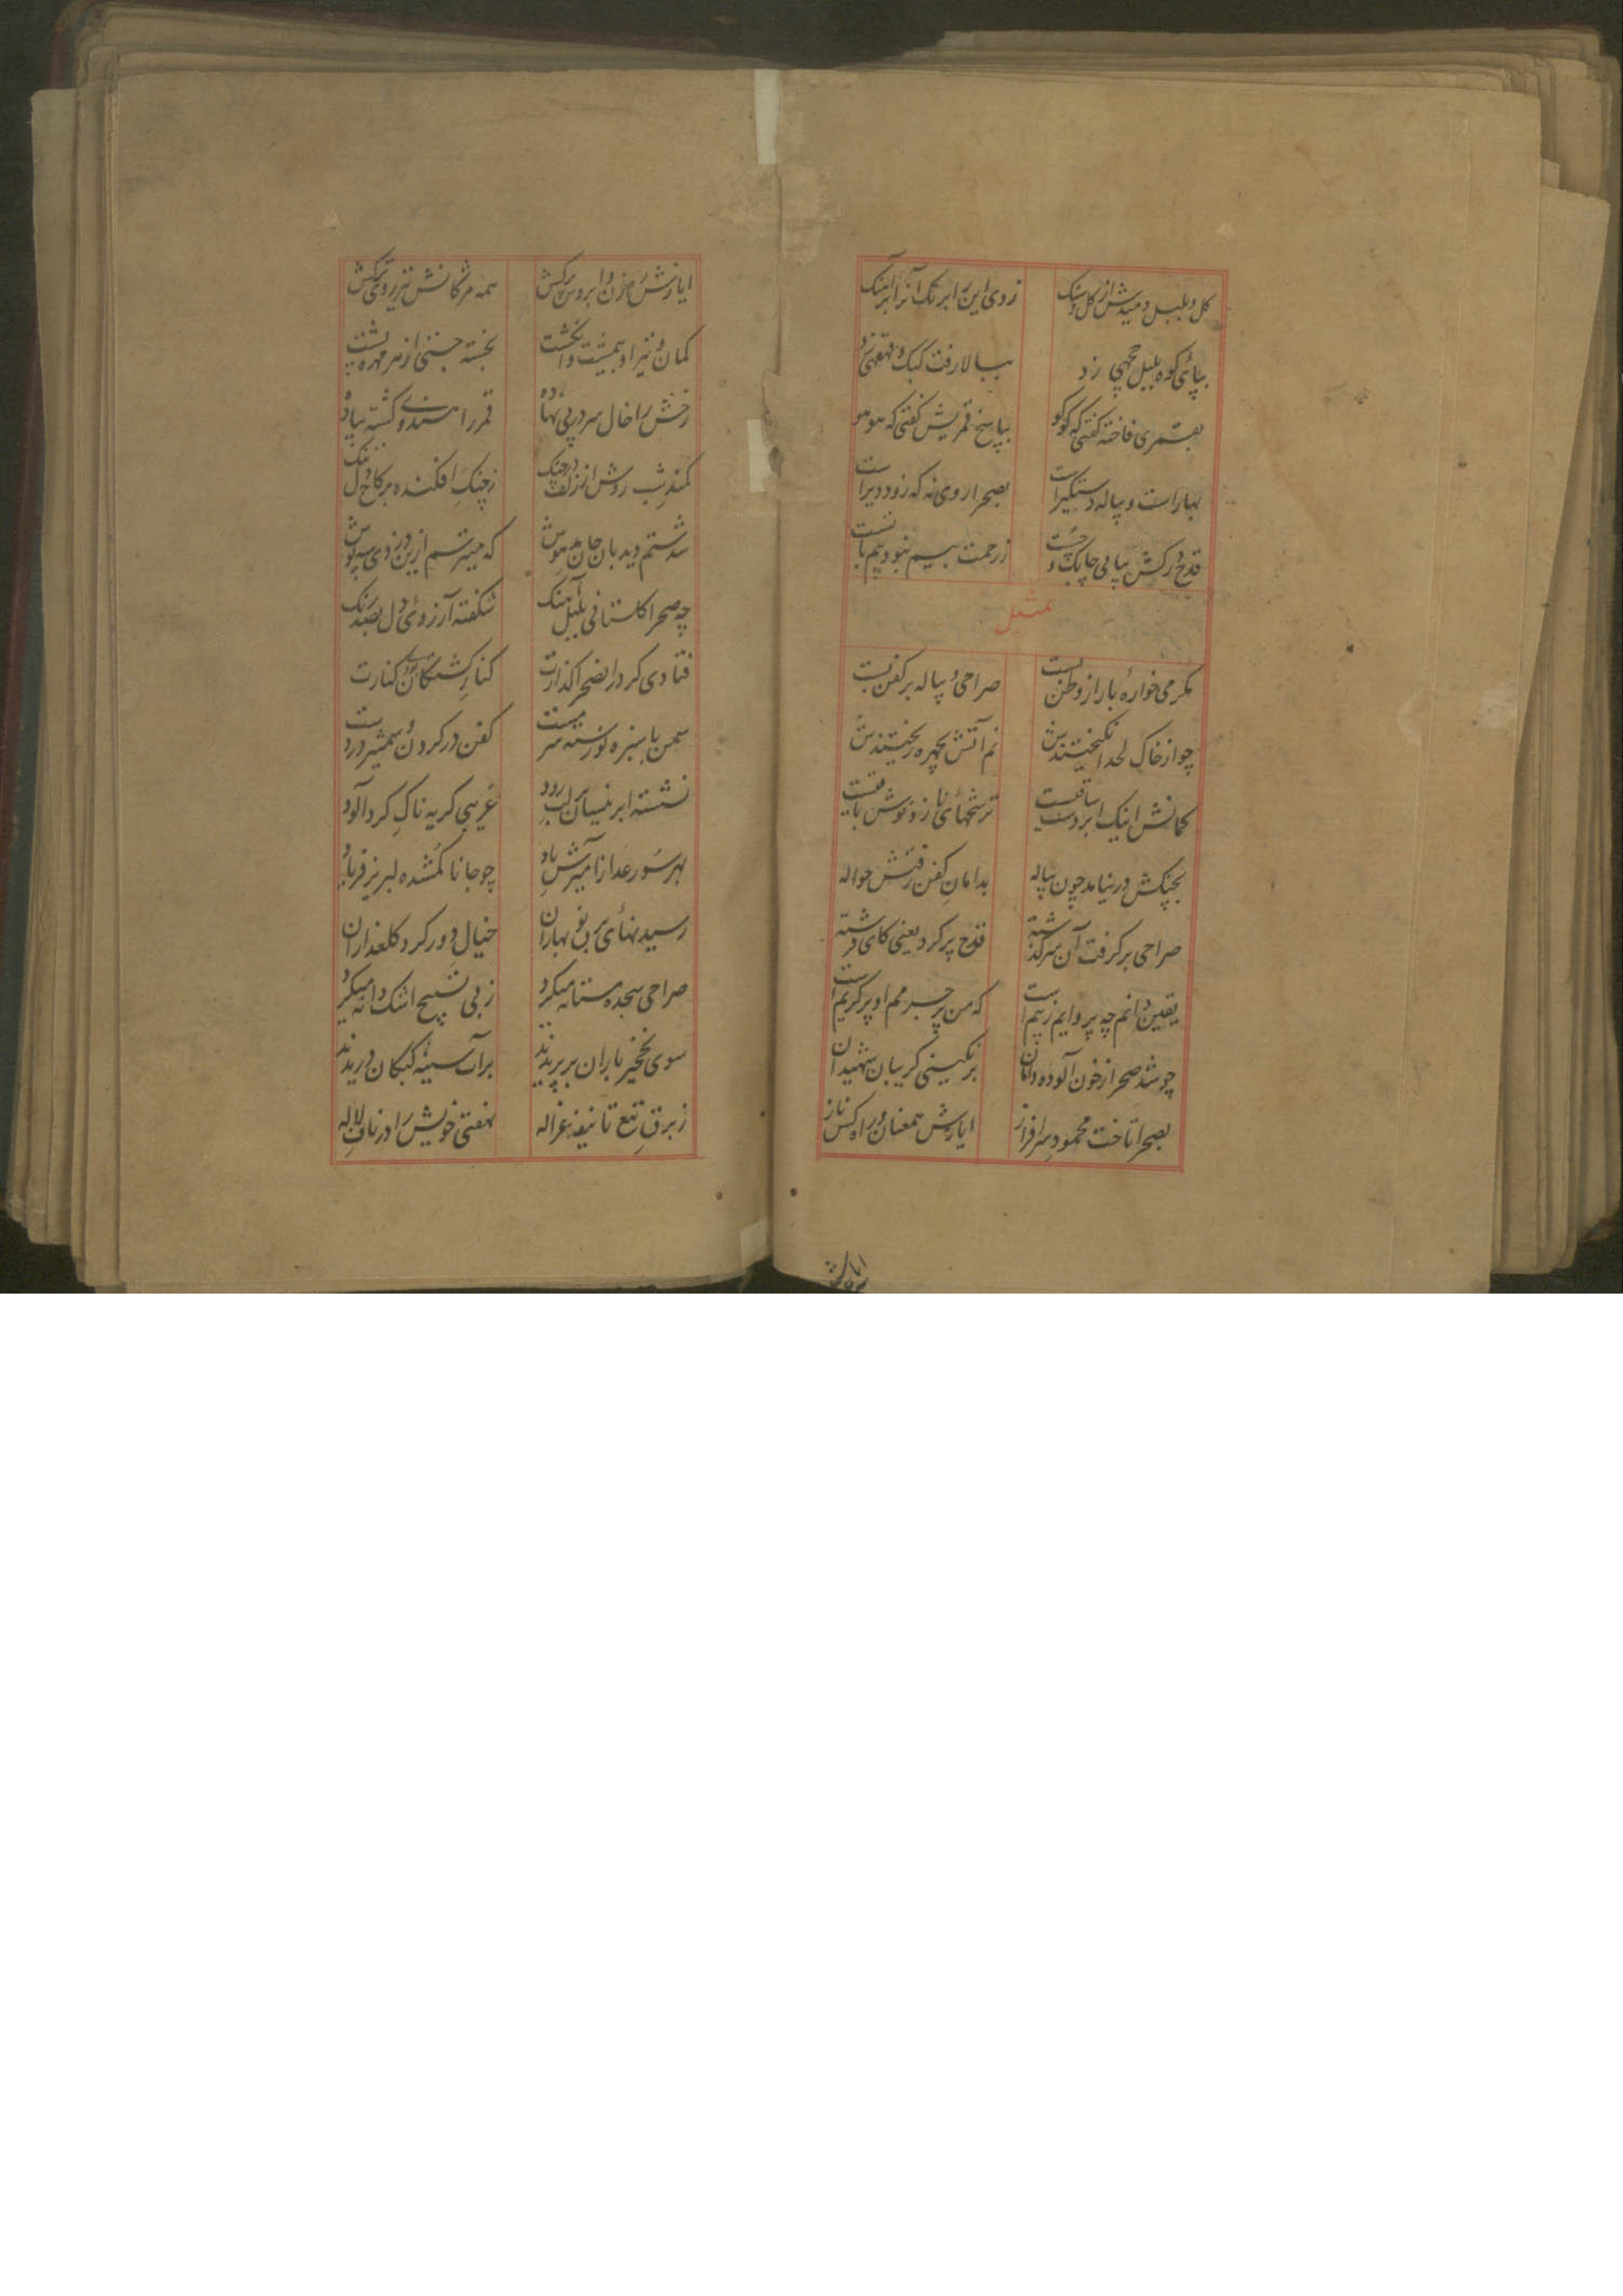 گل و بلبل دمیدش از گل و سنگ زدی این را بر تک آنرا بر آهنگ
بپائ کوه بلبل چهچهی زد ببالا رفت کبک و قهقهی زد
بقمری فاخته گفتی که کوکو بپاسخ قمریش گفتی که هو هو
بهار است و پیاله دستگیر است بصحرا روی نه که زود دیر است
قدح درکش بیا بی چابک و چست زرحمت بیم نبود بیم با تست
تمثیل
مگر می خوارهٔ بار از وطن بست صراحی و پیاله بر کفن بست
چو از خاک لحد انگیختندش نم آتش بچهره ریختندش
گمانش اینک ابر و ساقیست ترشحهای ناز و نوش باقیست
بچنگش در نیامد چون پیاله بدامان کفن رفتش حواله
صراحی برگرفت آن سرگذشته قدح پر کرد یعنی کای فرشته
یقین دانم چه پروایم ز بیم است که من پر جرمم او پر کریم است
چو شد صحرا ز خون آلوده دامان برنگینی گریبان شهیدان
بصحرا تاخت محمود سرافراز ایازش همعنان و راه کش ناز
ایازش
ایازش رهزن و ابروش سرکش همه مژگانش تیر روی ترکش
کمان و تیر او همپشت و انگشت بجسته جستنی از مهره پشت
رخش را خال سر در پی نهاده قمر را هندوی گشته پیاده
کمند شب روش از زلف در چنگ ز چنگ افکنده بر کاخ دل
شدستم دیدبان جان مدهوش که میترسم ازین دزدی سیه پوش
چه صحرا گلستانی بلبل آهنگ شکفته آرزوی دل بصد رنگ
فتادی گر در انصحرا گذارت کنار کشتگان بودی کنارت
سمن با سبزه نورسته سرمست کفن در گردن و شمشیر در دست
نشسته ابر نیسان بر لب رود غریبی گریه ناک گرد آلود
بهر سو رعد از آمیزش باد چو جانا گمشده لبریز فریاد
رسید نهای برف نو بهاران خیال دور گرد گلعذاران
صراحی سجده مستانه میکرد ز پی تسبیح اشک دانه میکرد
سوی نخجیر باران بر پریدند بران سینه کبکان دریدند
ز برق تیغ تا نیفه غزاله نهفتی خویش را در ناف لاله